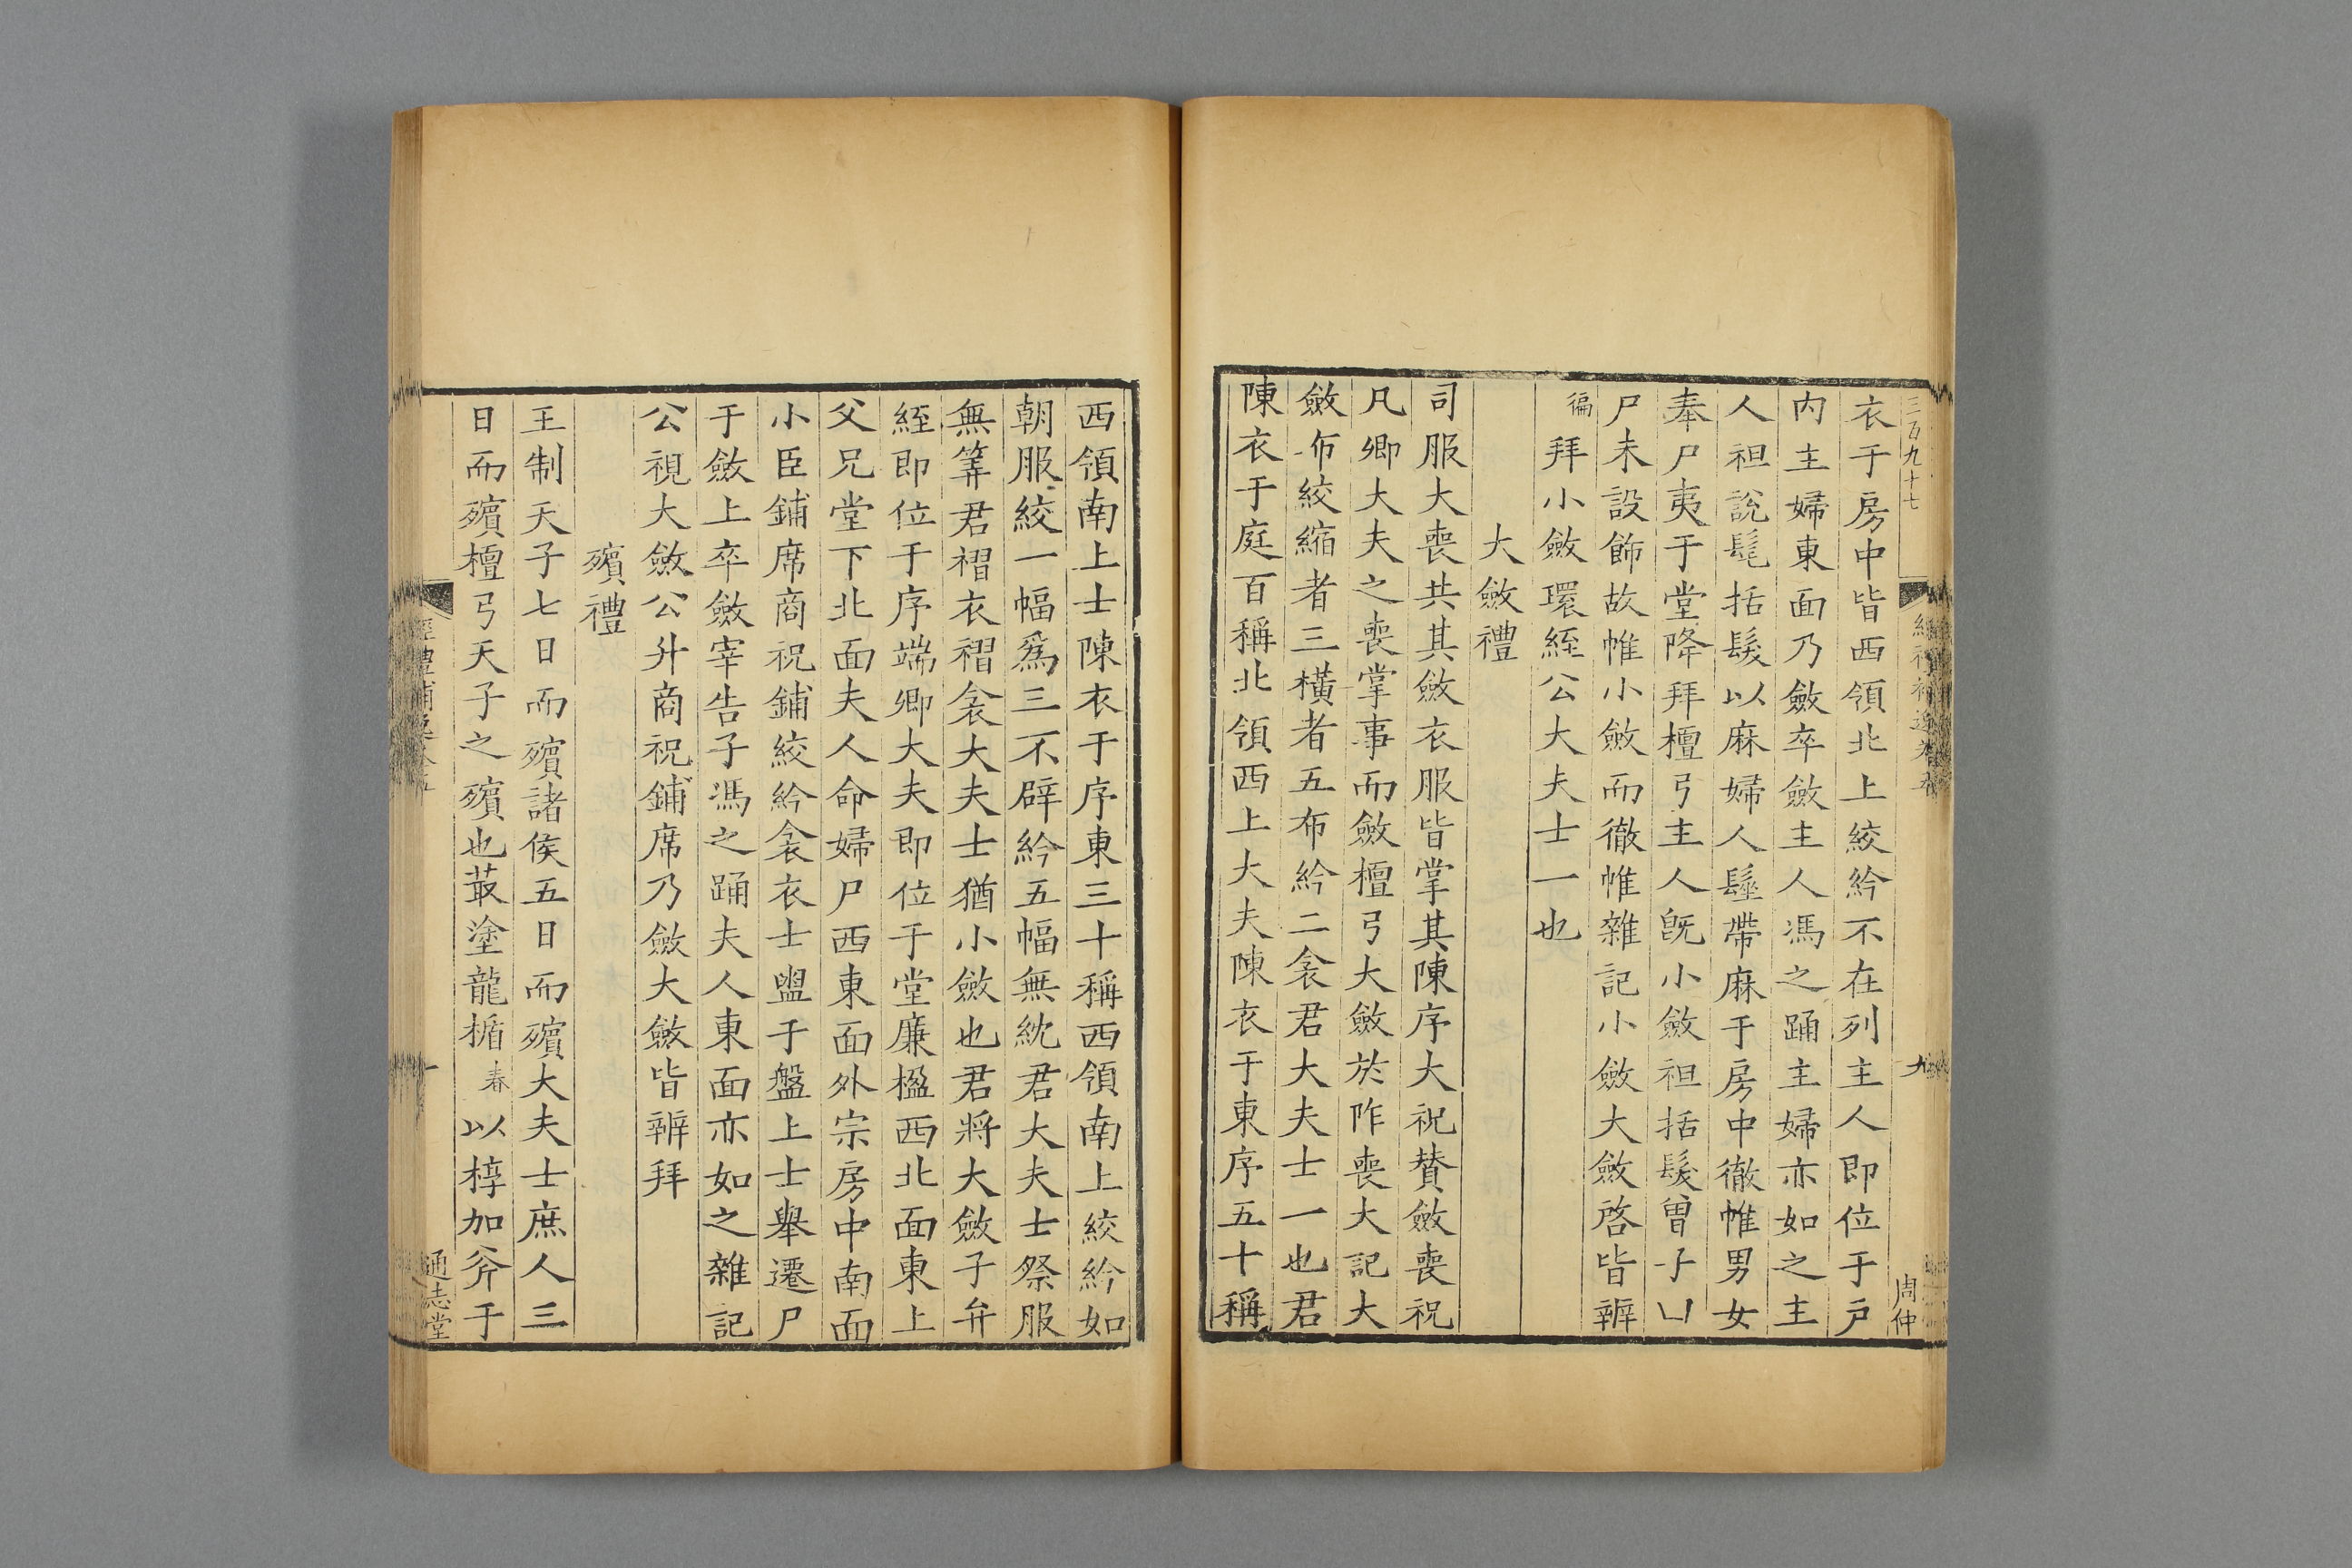 三百九十七
九
周仲
衣于房中皆西領北上絞紟不在列主人即位于戶
內主婦東面乃斂卒斂主人馮之踊主婦亦如之主
人袒說髦括髮以麻婦人髽帶麻于房中徹帷男女
奉尸夷于堂降拜檀弓主人旣小斂袒括髮曾子曰
尸未設飾故帷小斂而徹帷雜記小斂大斂啓皆辯
徧拜小斂環絰公大夫士一也
大斂禮
司服大喪共其斂衣服皆掌其陳序大祝贊斂喪祝
凡卿大夫之喪掌事而斂檀弓大斂於阼喪大記大
斂布絞縮者三橫者五布紟二衾君大夫士一也君
陳衣于庭百稱北領西上大夫陳衣于東序五十稱
西領南上士陳衣于序東三十稱西領南上絞紟如
朝服絞一幅爲三不辟紟五幅無紞君大夫士祭服
無筭君褶衣褶衾大夫士猶小斂也君將大斂子弁
絰即位于序端卿大夫即位于堂廉楹西北面東上
父兄堂下北面夫人命婦尸西東面外宗房中南面
小臣鋪席商祝鋪絞紟衾衣士盥于盤上士舉遷尸
于斂上卒斂宰告子馮之踊夫人東面亦如之雜記
公視大斂公升商祝鋪席乃斂大斂皆辯拜
殯禮
王制天子七日而殯諸侯五日而殯大夫士庶人三
日而殯檀弓天子之殯也菆塗龍楯春以椁加斧于
通志堂